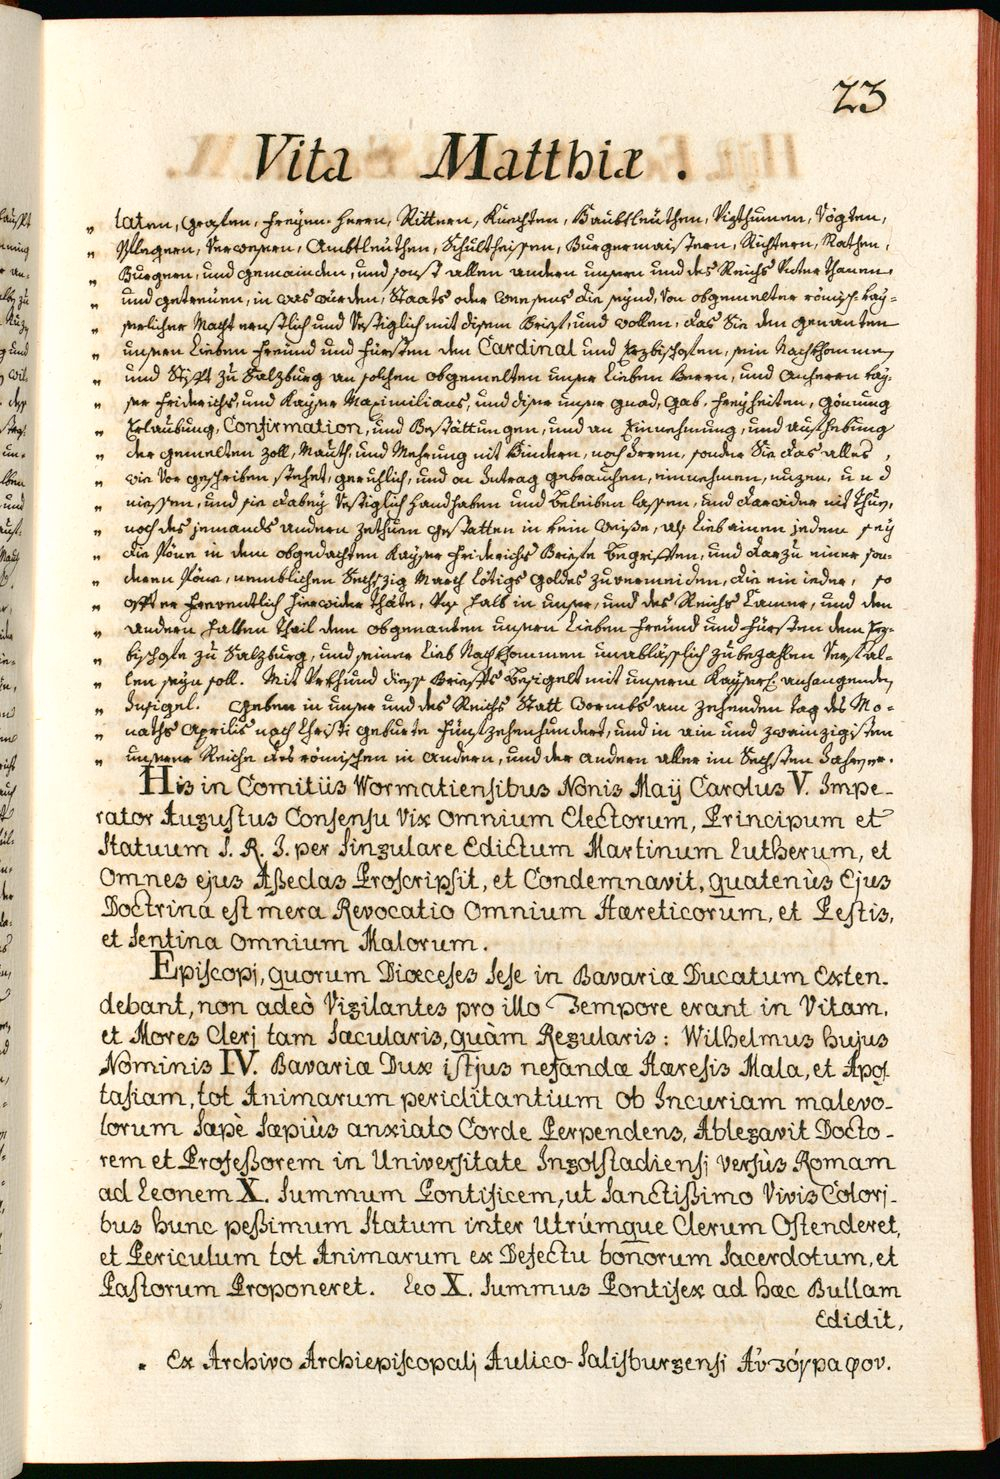 23
Vita Matthiæ.
„ laten, Grafen, Freyen. Herrn, Rittern, Knechten, Haubtleuthen, Vizthumen, Vögten,
„ Pflegern, Verwesern, Ambtleuthen, Schultheissen, Burgermaistern, Richtern, Räthen,
„ Burgern, und gemainden, und sonst allen andern unsern und des Reichs Unterthanen.
„ und getreuen, in was würden, Staats oder Weesens die seynd, Von obgemelter römisch. kay=
„ serlicher Macht ernstlich und Vestiglich mit disem Brief, und wollen, das Sie den genanten
„ unsern Lieben Freund und Fürsten den Cardinal und Erzbischofen, sein Nachkhommen
„ und Stifft zu Salzburg an solchen obgemelten unser Lieben Herrn, und Anherrn kay=
„ ser Friderichs, und Kayser Maximilians, und diser unser gnad, Gab, Freyheiten, Gönnung
„ Erlaubung, Confirmation, und Bestättungen, und an Einnehmung, und aufhebung
„ der gemelten Zoll, Mauth, und Mehrung nit hindern, noch Irren, sonder Sie das alles,
„ wie Vor geschriben stehet, geruhlich, und on Intrag gebrauchen, einnehmen, nuzen, und
„ niessen, und sie dabey Vestiglich handhaben und beleiben lassen, und darwider nit thuen,
„ noch des jemands andern zethuen gestatten in kein Weiße, als Lieb einen jedem sey
„ die Pöne in dem obgedachten Kayser Friderichs Briefe begriffen, und darzu einer son=
„ deren Pöne, nemblichen Sechzig March Lötigs Goldes zuvermeiden, die ein ieder, so
„ offt er Freventlich hierwider thäte, Uns halb in unser, und des Reichs Camer, und den
„ andern halben theil dem obgenanten unsern Lieben Freund und Fürsten dem Erz=
„ bischofe zu Salzburg, und seiner Lieb Nachkhommen unablässlich zubezahlen Verfal=
„ len seyn soll. Mit Urkhund diess Brieffs besigelt mit unserm Kayserl. anhangenden
„ Insigel. Geben in unser und des Reichs Statt Wormbs am zehenden tag des Mo=
„ naths Aprilis nach Christi geburte Fünfzehenhundert, und in ain und zwainzigisten
„ unserer Reiche des römischen in andern, und der andern aller im Sechsten Jahren.
His in Comitiis Wormatiensibus Nonis Maij Carolus V. Impe-
rator Augustus Consensu Vix omnium Electorum, Principum et
Statuum S. R. I. per singulare Edictum Martinum Lutherum, et
omnes ejus Aßeclas Proscripsit, et Condemnavit, quatenùs Ejus
Doctrina est mera Revocatio omnium Hæreticorum, et Pestis,
et Sentina omnium Malorum.
Episcopj, quorum Diœceses sese in Bavariæ Ducatum Exten-
debant, non adeò Vigilantes pro illo Tempore erant in Vitam,
et Mores Clerj tam Sæcularis, quàm Regularis: Wilhelmus hujus
Nominis IV. Bavariæ Dux istjus nefandæ Hæresis Mala, et Apos
tasiam, tot Animarum periclitantium ob Incuriam malevo-
lorum Sæpè Sæpiùs anxiato Corde Perpendens, Ablegavit Docto-
rem et Profeßorem in Universitate Ingolstadiensj Versùs Romam
ad Leonem X. Summum Pontificem, ut Sanctißimo Vivis Colorj-
bus hunc peßimum Statum inter Utrúmque Clerum Ostenderet,
et Periculum tot Animarum ex Defectu bonorum Sacerdotum, et
Pastorum Proponeret. Leo X. Summus Pontifex ad hæc Bullam
Edidit,
* Ex Archivo Archiepiscopalj Aulico-Salisburgensi Ἀυτόγραφον.